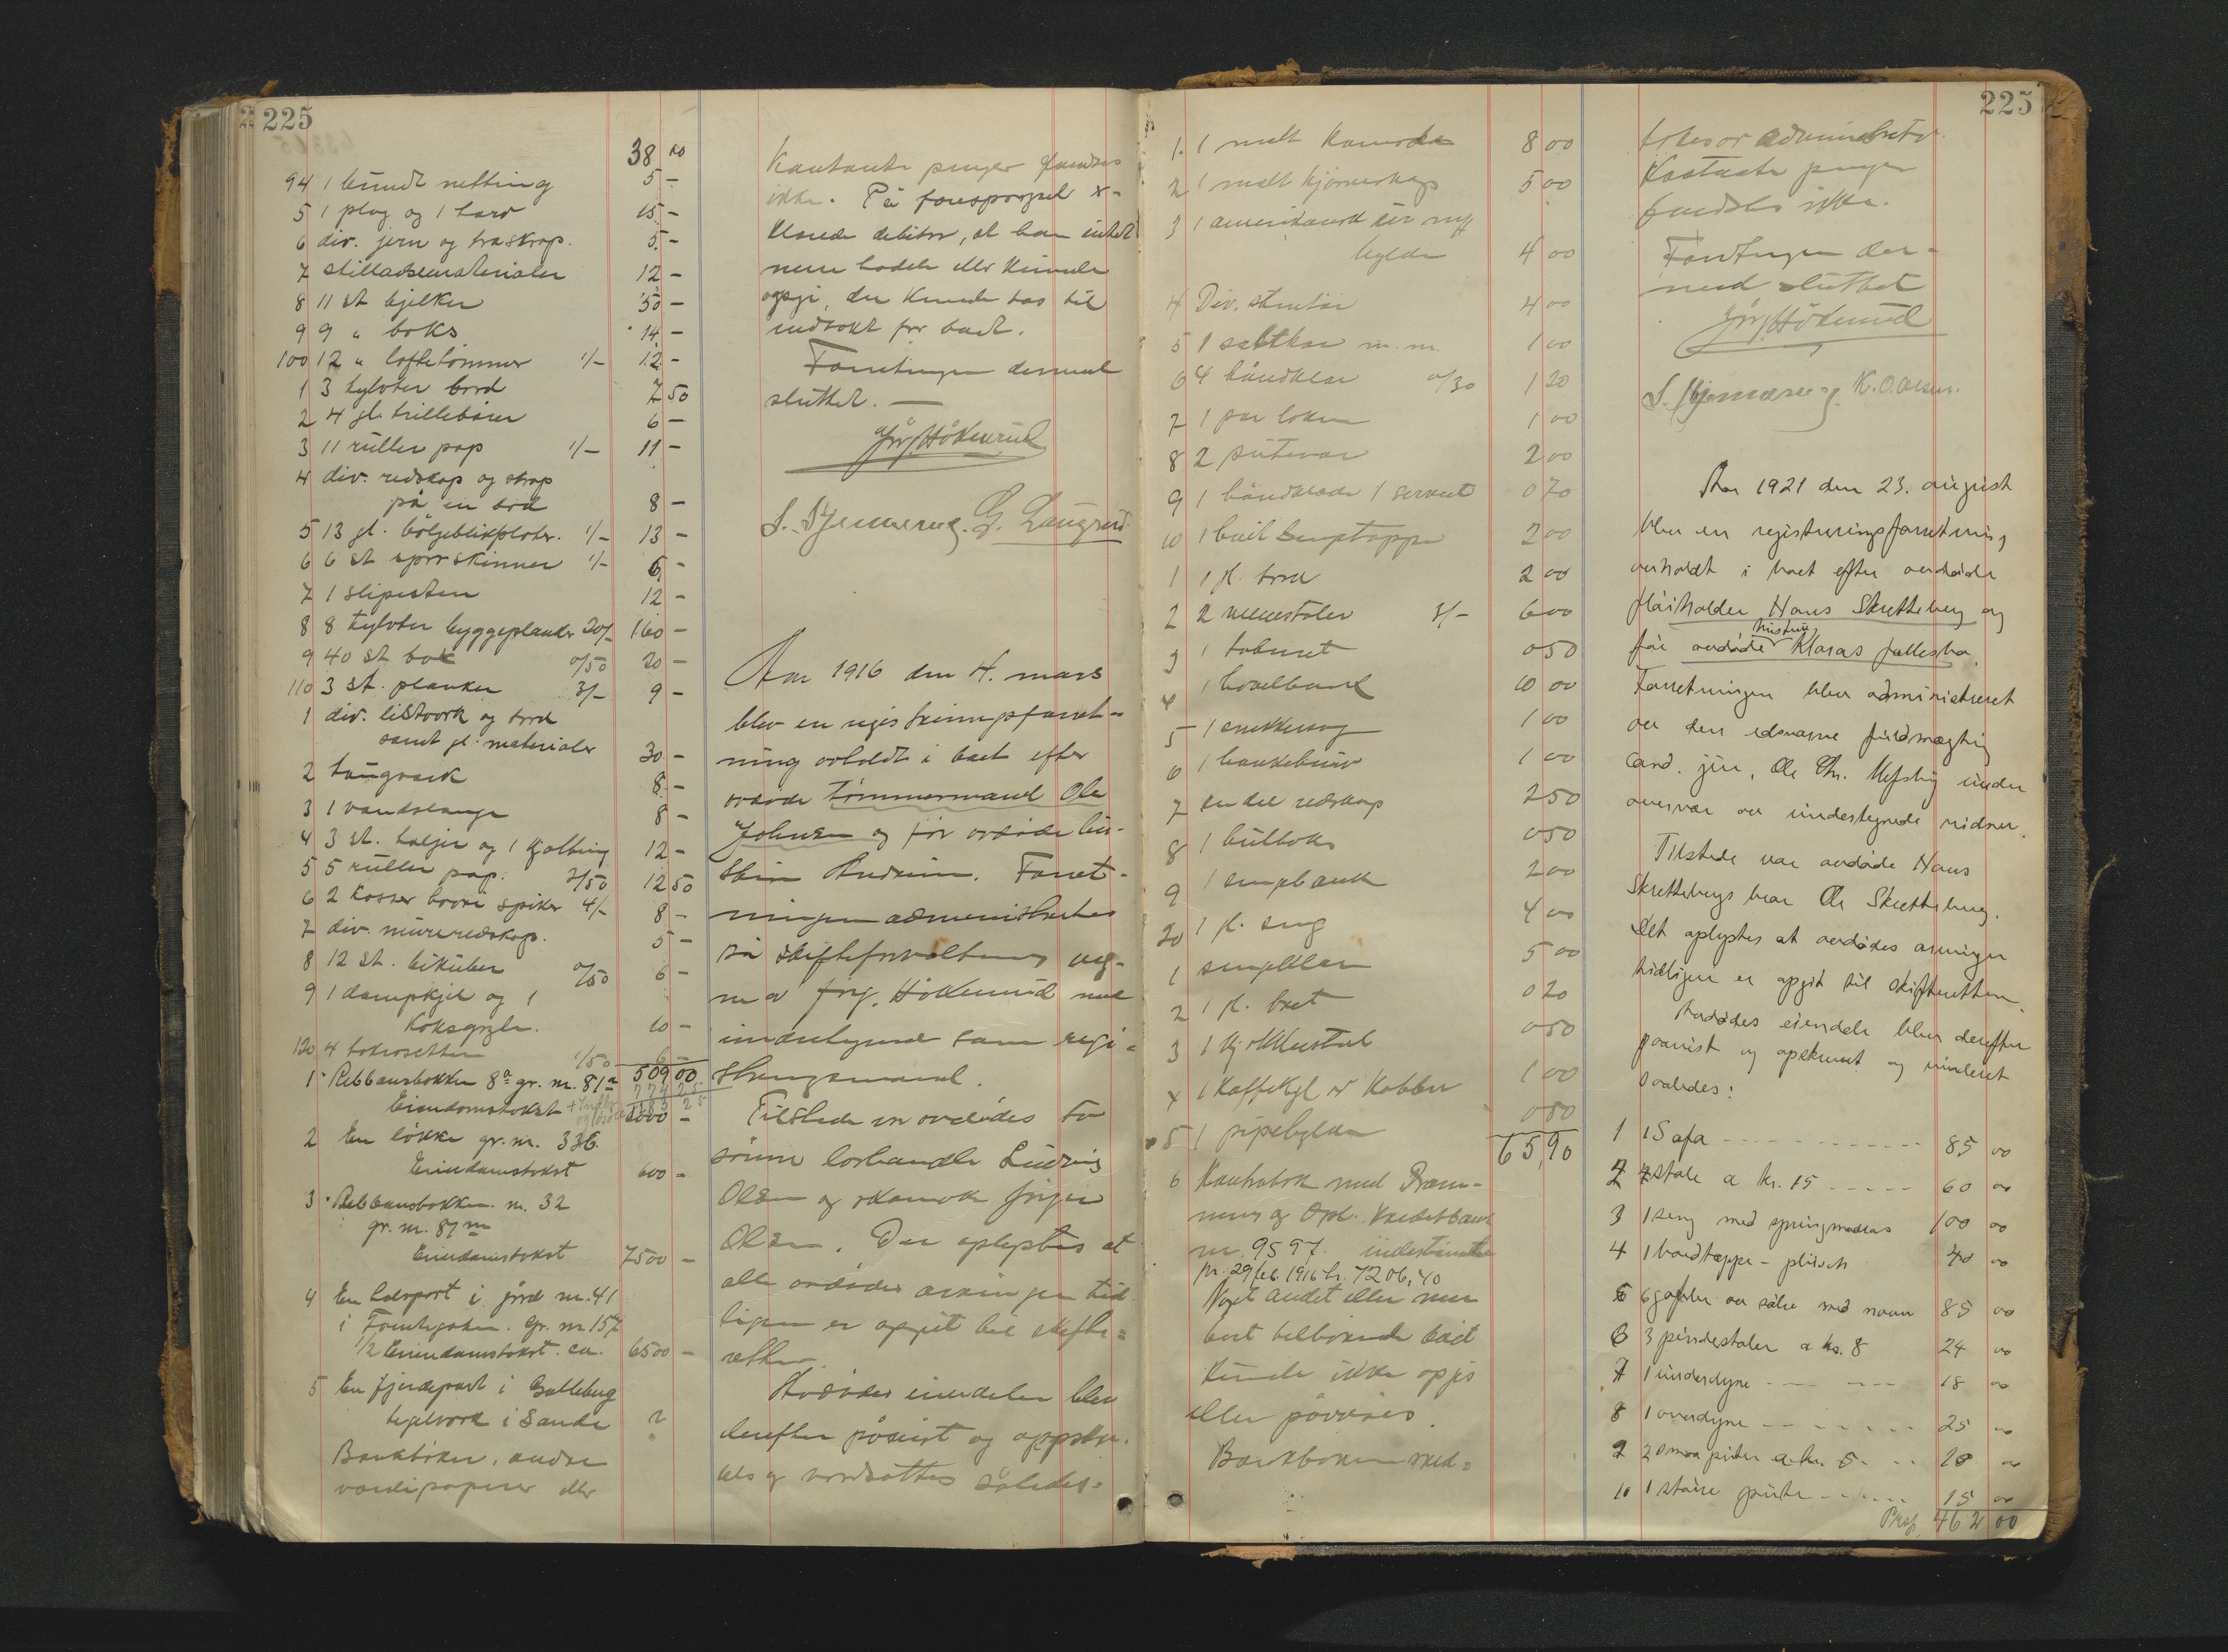 225
38 00
94 1 bundt netting 5 -
5 1 plog og 1 harv 15 -
6 div. jern og traskrap. 5 -
7 stilladsematerialer 12 -
8 11 st bjelker 50 -
9 9 " boks 14 -
100 12 " loftetømmer 1/- 12 -
1 3 tylvter bord 7 50
2 4 gl. trillebører 6 -
3 11 ruller pap 1/- 11 -
4 div. redskap og skrap
på en bod 8 -
5 13 gl. bølgeblikplater. 1/- 13 -
6 6 st sporskinner 1/- 6 -
7 1 slipesten 12 -
8 8 tylvter byggeplanker 20/- 160 -
9 40 st. bok 0/50 20 -
110 3 st. planker 3/- 9 -
1 div. listverk og bord
samt gl. materialer 30 -
2 taugverk 8 -
3 1 vandslange 8 -
4 3 st. taljer og 1 kjetting 12 -
5 5 ruller pap. 2/50 12 50
6 2 kasser spiker 4/- 8 -
7 div. mureredskap. 5 -
8 12 st. bikuber 0/50 6 -
9 1 dampkjel og 1
koksgryte. 10 -
120 4 1/50 6 -
509 00
774 25
1283 25
1 Rebbansbakken 8a gr. nr. 81a
Eiendomstakst 8000 -
2 En løkke gr. nr. 336.
Eiendomstakst 600 -
3 Rebbansbakken nr. 32
gr. nr. 87m
Eiendomstakst 7500 -
4 En halvpart i jord nr. 41
i gr. nr 157
1/2 Eiendomstakst. ca. 6500 -
5 En fjerdepart i Galleberg
teglverk i Sande ?
Bankbøker, andre
verdipapirer eller
Kontante penger fandtes
ikke. På forespørgsel er-
klærede debitor, at han intet
mere hadde eller kunde
opgi, der kunde tas til
indtækt for boet.
Forretningen dermed
sluttet. —
Jørg. Høkerud
S. Bjerneng. G. Laugrud
Aar 1916 den 4. mars
blev en registreringsforret-
ning avholdt i boet efter
avdøde tømmermand Ole
Johnsen og før avdøde hu-
stru Andrine. Forret-
ningen administrertes
på skifteforvalterens veg-
ne av Jørg. Høkerud med
undertegnede som regi-
streringsmænd.
Tilstede var avdødes to
sønner Ludvig
Olsen og skomaker Jørgen
Olsen. Der oplystes at
alle avdødes arvinger tid-
ligere er opgit til skifte-
retten.
Avdødes eiendeler blev
derefter påvist og opskre-
vet og verdsattes således:
225
1. 1 malt komode 8 00
2 1 malt hjørneskap 5 00
3 1 amerikansk ur og
hylde 4 00
4 Div. stentøi 4 00
5 1 saltkar m.m. 1 00
6 4 håndklær 0/30 1 20
7 1 par laken 1 00
8 2 putevar 2 00
9 1 håndklæde 1 serviet 0 70
10 1 hvit sengetæppe 2 00
1 1 gl. bord 2 00
2 2 3/- 6 00
3 1 taburet 0 50
4 1 høvelbænk 10 00
5 1 snekkersag 1 00
6 1 1 00
7 en del redskap 2 50
8 1 0 50
9 1 sengbænk 2 00
20 1 gl. seng 4 00
1 sengklær 5 00
2 1 gl. bret 0 20
3 1 kjøkkenstol 0 50
4 1 kaffekjel av kobber 1 00
5 1 pipehylde 0 80
65,90
6 Kontrabok med Dram-
mens og Opl. Kreditbank
nr. 9597. indestaaende
pr. 29/feb. 1916 kr. 7206,40
Noget andet eller mer
boet tilhørende boet
kunde ikke opgis
eller påvises.
Bankboken med-
toges av administrator.
Kontante penger
fandtes ikke.
Forretningen der-
med sluttet
Jørg. Høkerud
S. Bjerneng. K. O. Olsen.
Aar 1921 den 23. august
blev en registreringsforretning
avholdt i boet efter avdøde
Hans Skretteberg og
før avdøde hustru Klaras fællesbo.
Forretningen blev administreret
av den edsvorne fuldmægtig
cand. jur. Ole Chr. under
overvær av undertegnede vidner.
Tilstede var avdøde Hans
Skrettebergs bror Ole Skretteberg.
Det oplystes at avdødes arvinger
tidligere er opgit til skifteretten.
Avdødes eiendele blev derefter
paavist og opskrevet og vurderet
saaledes:
1 1 Sofa - - - - 85 00
2 4 stole a kr. 15 - - - - 60 00
3 1 seng med springmadras 100 00
4 1 bordtæppe - plusch 40 00
5 6 gafler av sølv med navn 85 00
6 3 pindestoler a kr. 8 24 00
7 1 underdyne - - - - 18 00
8 1 overdyne - - - - 25 00
9 2 smaa puter a kr. 5 - - 10 00
10 1 større pute - - - - 15 00
462 00